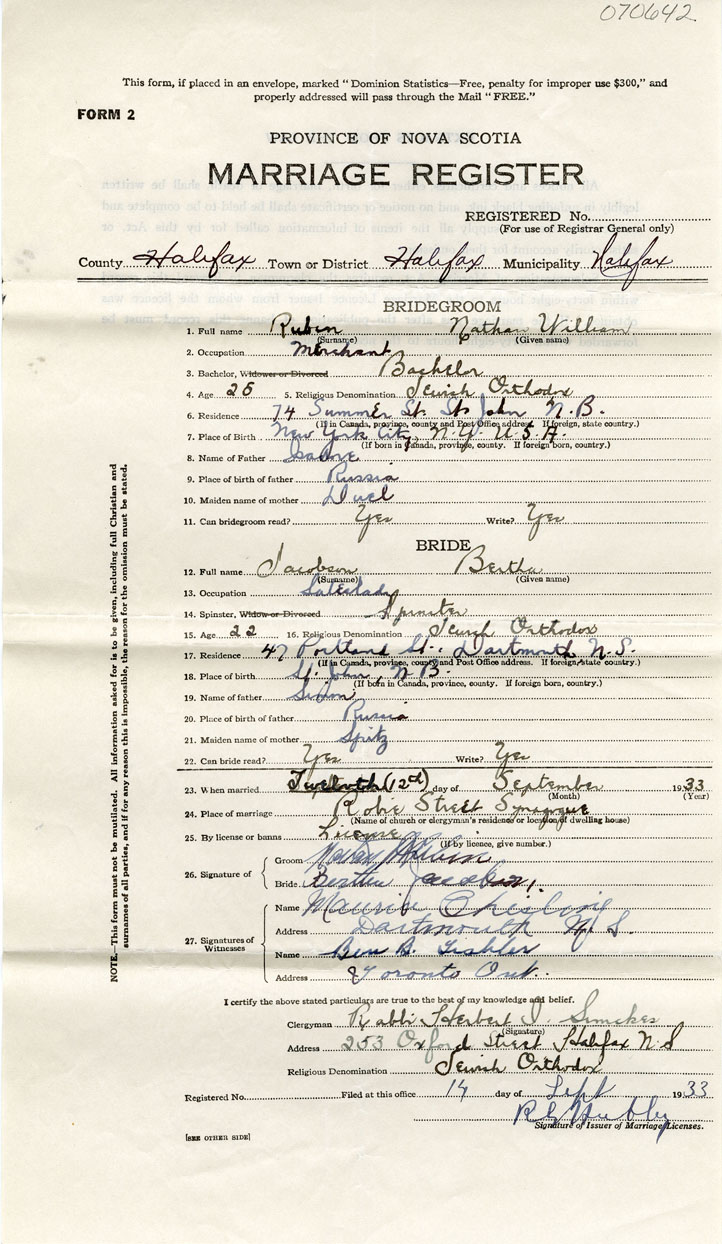 070642
This form, if placed in an envelope, marked "Dominion Statistics—Free, penalty for improper use $300," and
properly addressed will pass through the Mail "FREE."
FORM 2
PROVINCE OF NOVA SCOTIA
MARRIAGE REGISTER
REGISTERED No.
(For use of Registrar General only)
County Halifax Town or District Halifax Municipality Halifax
BRIDEGROOM
1. Full name Rubin Nathan William
(Surname) (Given name)
2. Occupation Merchant
3. Bachelor, Widower or Divorced Bachelor
4. Age 26 5. Religious Denomination Jewish Orthodox
6. Residence 74 Summer St. St. John N.B.
(If in Canada, province, county and Post Office address. If foreign, state country.)
7. Place of Birth New York City, N.Y. U.S.A.
(If born in Canada, province, county. If foreign born, country.)
8. Name of Father
9. Place of birth of father Russia
10. Maiden name of mother
11. Can bridegroom read? Yes Write? Yes
BRIDE
12. Full name Jacobson Bertha
(Surname) (Given name)
13. Occupation Saleslady
14. Spinster, Widow or Divorced Spinster
15. Age 22 16. Religious Denomination Jewish Orthodox
17. Residence 47 Portland St. Dartmouth N.S.
(If in Canada, province, county and Post Office address. If foreign, state country.)
18. Place of birth St. John, N.B.
(If born in Canada, province, county. If foreign born, country.)
19. Name of father Simon
20. Place of birth of father Russia
21. Maiden name of mother Spitz
22. Can bride read? Yes Write? Yes
23. When married Twelveth (12th) day of September 1933
(Month) (Year)
24. Place of marriage Robie Street Synagogue
(Name of church or clergyman's residence or location of dwelling house)
25. By license or banns License
(If by licence, give number.)
26. Signature of
Groom Nathan Rubin
Bride Bertha Jacobson
27. Signatures of Witnesses
Name Maurice
Address Dartmouth N.S.
Name Ben B. Fishler
Address Toronto Ont.
I certify the above stated particulars are true to the best of my knowledge and belief.
Clergyman Rabbi Herbert I. Simckes
(Signature)
Address 253 Oxford Street Halifax N.S
Religious Denomination Jewish Orthodox
Registered No. Filed at this office 14 day of Sept 1933
Signature of Issuer of Marriage Licenses.
[SEE OTHER SIDE]
NOTE.—This form must not be mutilated. All information asked for is to be given, including full Christian and
surnames of all parties, and if for any reason this is impossible, the reason for the omission must be stated.